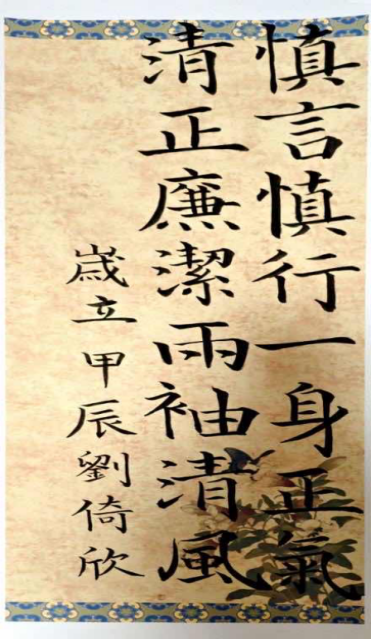 慎言慎行一身正氣
清正廉潔雨袖清風
歲立甲辰劉倚欣